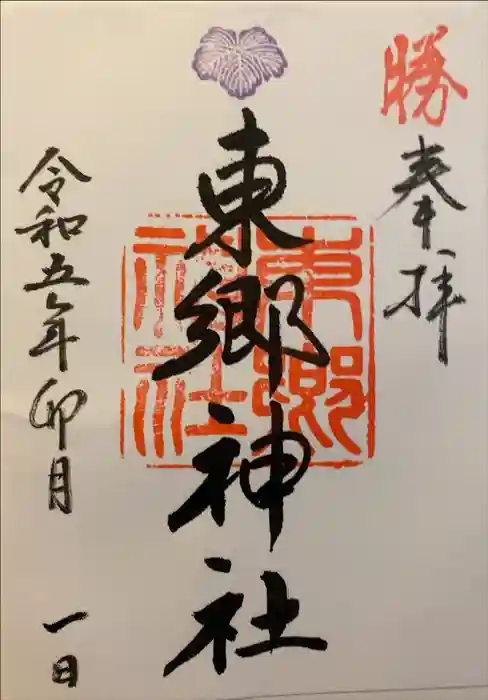 勝
奉拝
東郷神社
東郷神社
令和五年卯月
一日